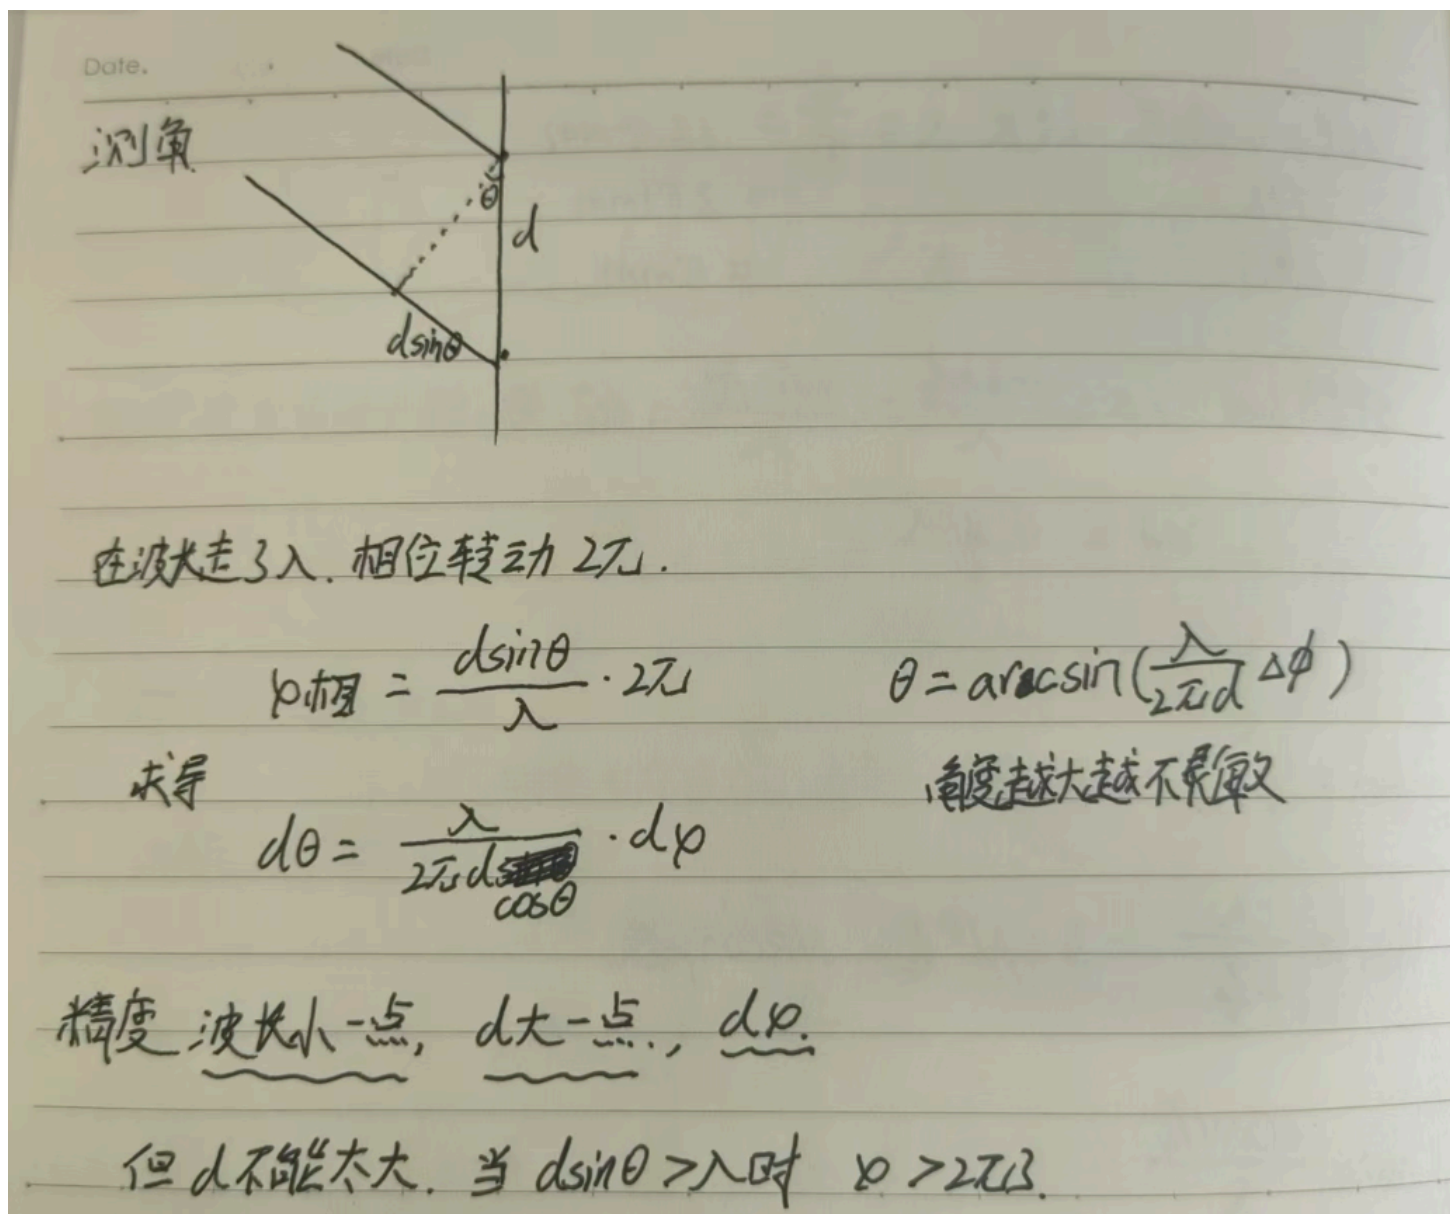 Date.
测角
θ
d
dsinθ
在波长走了λ. 相位转动 2π.
φ相 = dsinθ/λ · 2π
θ = arcsin(λ/2πd Δϕ)
求导
角度越大越不灵敏
dθ = λ/2πd cosθ · dφ
精度 波长小一点, d大一点, dφ.
但 d 不能太大. 当 dsinθ > λ时 φ > 2π了.